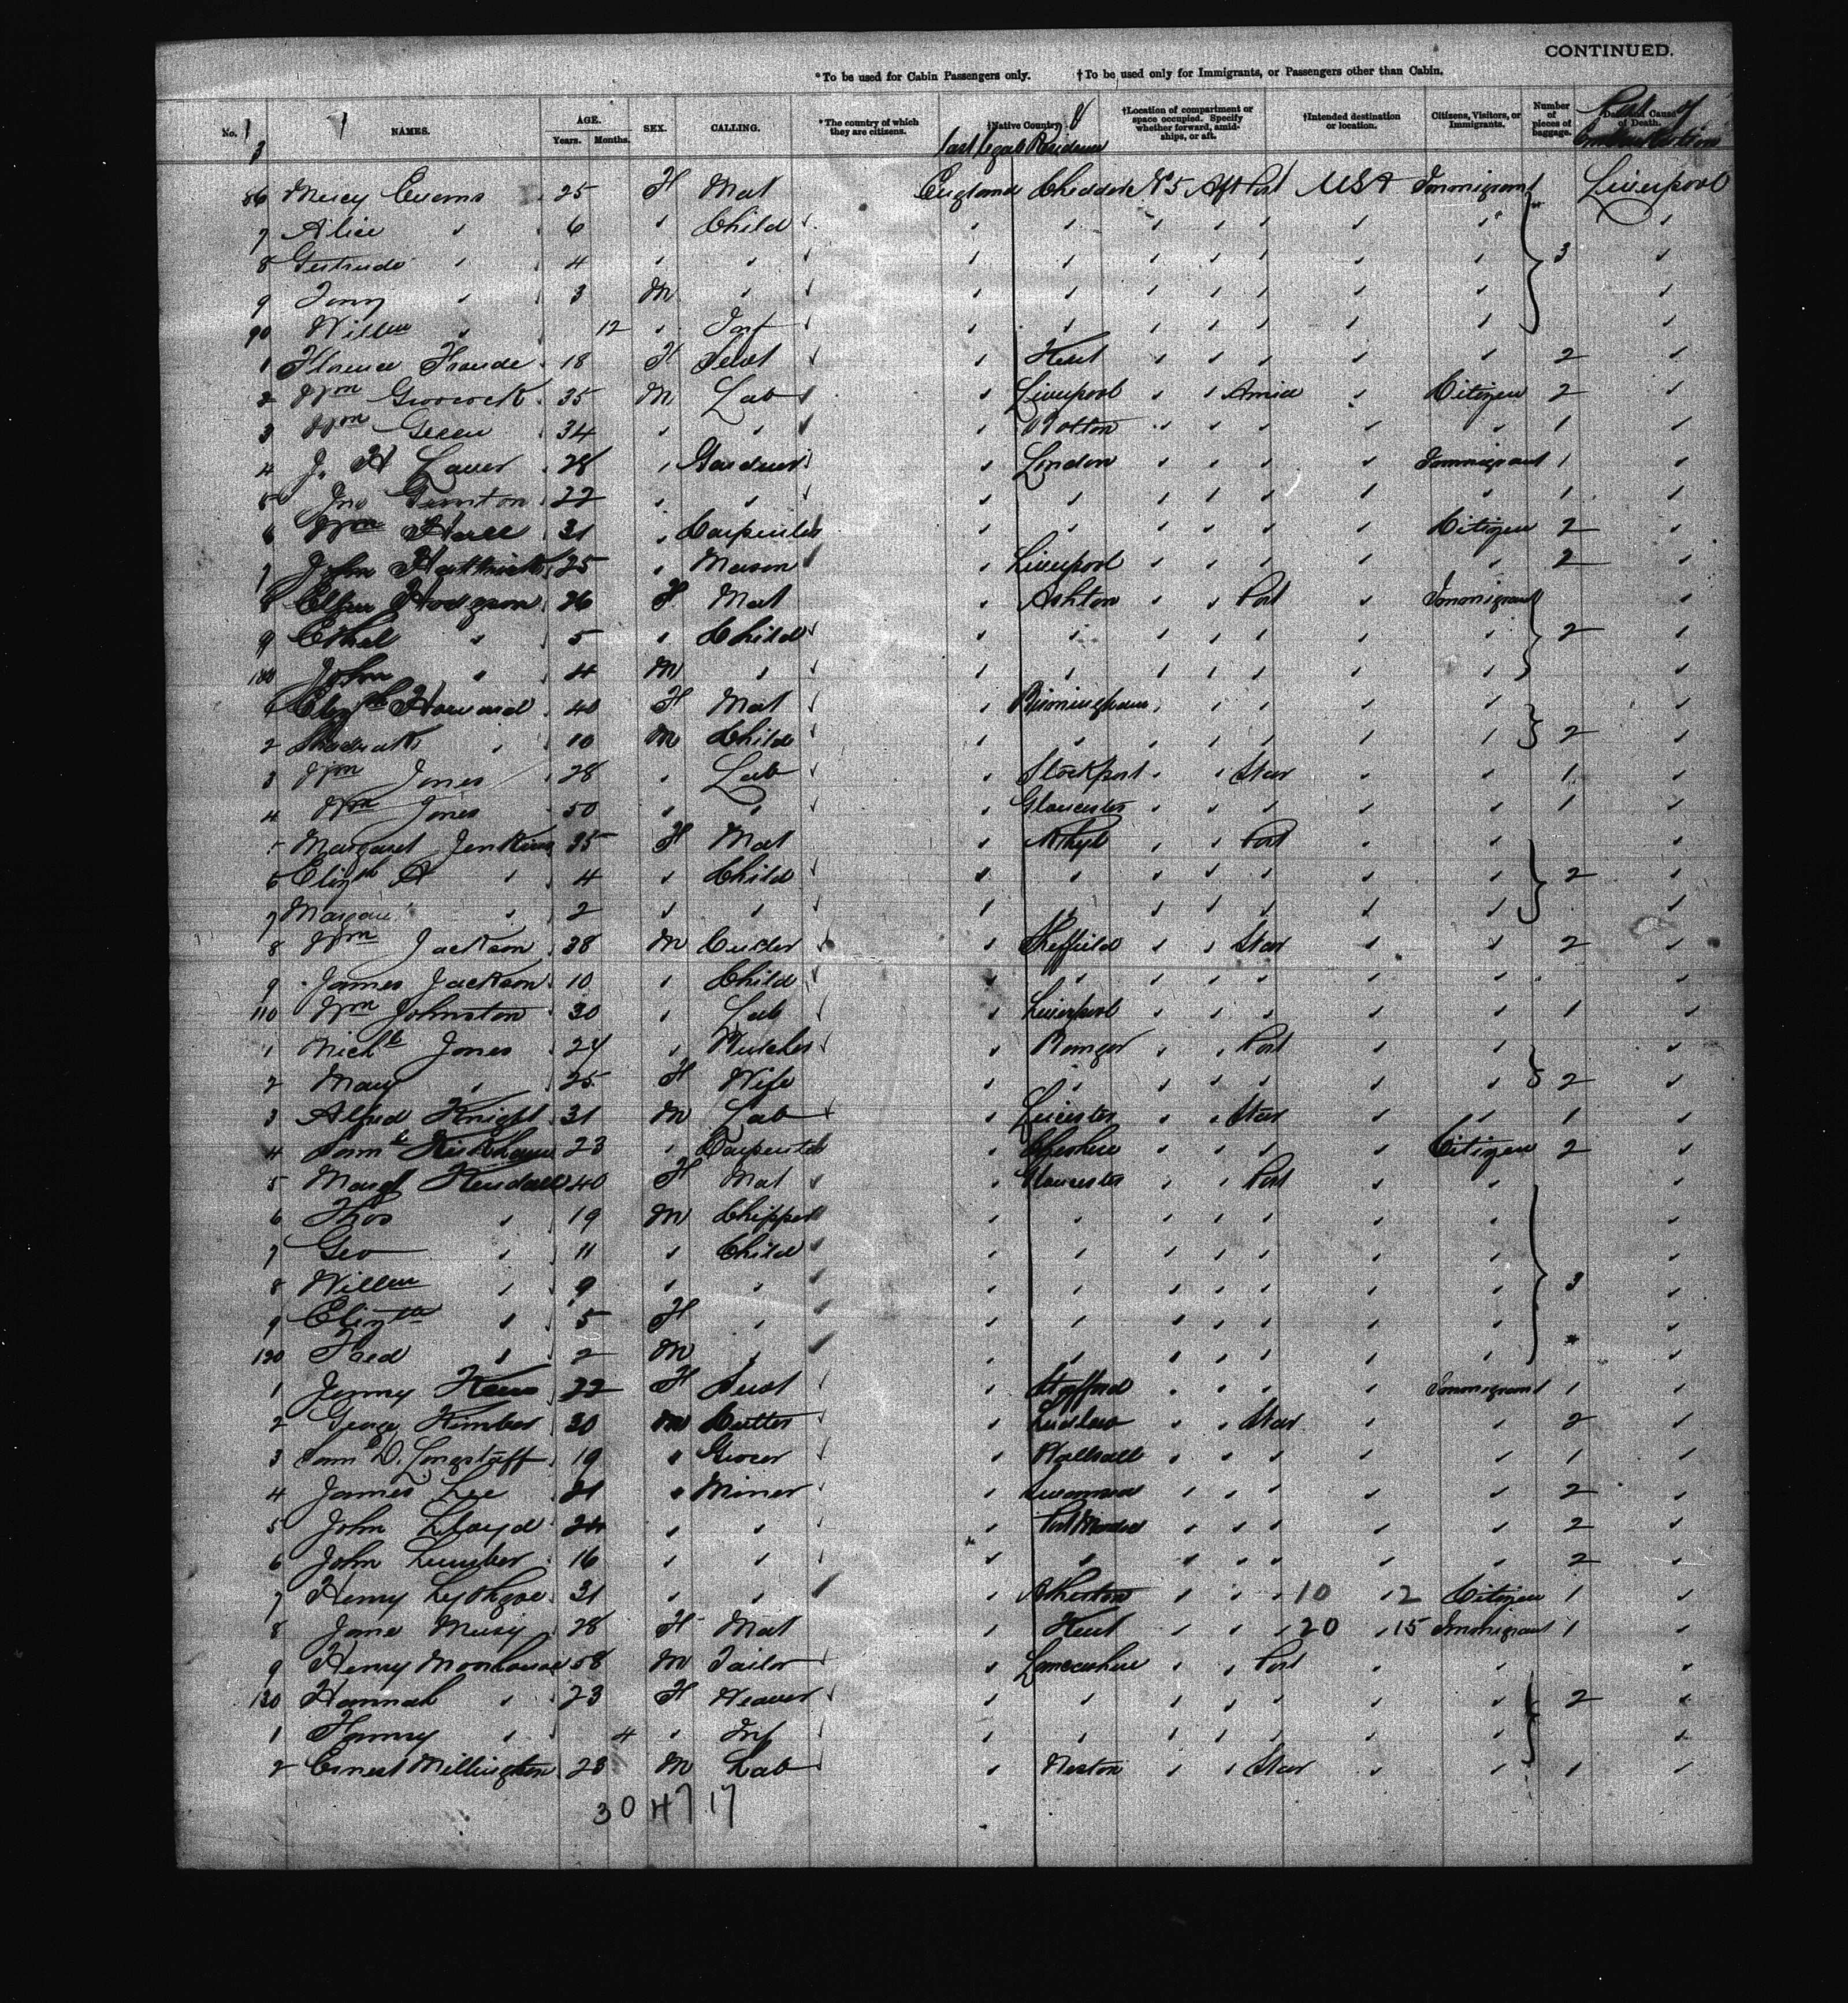 CONTINUED.
*To be used for Cabin Passengers only. †To be used only for Immigrants, or Passengers other than Cabin.
No. NAMES. AGE. Years. Months. SEX. CALLING. *The country of which they are citizens. †Native Country. †Location of compartment or space occupied. Specify whether forward, amidships, or aft. †Intended destination or location. Citizens, Visitors, or Immigrants. Number of pieces of baggage. Date and Cause of Death.
last legal Residence Port of
86 Mercy Evans 25 F Mat England No 5 Aft Port USA Immigrant Liverpool
7 Alice " 6 " Child
8 Gertrude " 4 " " 3
9 " 3 M "
90 Willm " 12 " Inf
1 Florence 18 F Servt Kent 2
2 Wm 35 M Lab Liverpool Citizen 2
3 Wm Green 34 " " 1
4 J. H Laver 28 " Gardner London Immigrant 1
5 Jno 22 " " 1
6 Wm Hall 31 " Carpenter Citizen 2
7 John 25 " Mason Liverpool 2
8 Ellen Hodgson 26 F Mat Ashton Port Immigrant
9 Ethel " 5 " Child 2
100 John " 4 M "
1 Elizth Howard 40 F Mat Birmingham
2 " 10 M Child 2
3 Wm Jones 28 " Lab Stockport Star 1
4 Wm Jones 50 " " Gloucester 1
5 Margaret Jenkins 35 F Mat Rhyl Port
6 Elizth A " 4 " Child 2
7 " 2 " "
8 Wm Jackson 38 M Sheffield Star 2
9 James Jackson 10 " Child
110 Wm Johnston 30 " Lab Liverpool 1
1 Nichls Jones 24 " Butcher Bangor Port
2 Mary " 25 F Wife 2
3 Alfred Knight 31 M Lab Leicester Star 1
4 Saml Kirkham 23 " Carpenter Cheshire Citizen 2
5 Margt Kendall 40 F Mat Gloucester Port
6 Thos " 19 M Chipper
7 Geo " 11 " Child
8 Willm " 9 " " 3
9 Elizth " 5 F "
120 Fred " 2 M "
1 Jenny 22 F Servt Stafford Immigrant 1
2 George Kimber 30 M Cutter Ludlow Star 2
3 Saml D. Longstaff 19 " Grocer Walsall 1
4 James Lee 21 " Miner Swansea 2
5 John Lloyd 24 " " 2
6 John 16 " " 2
7 Henry Lythgoe 31 " " Atherton 10 2 Citizen 1
8 Jane 28 F Mat Kent 20 15 Immigrant 1
9 Henry Moorhouse 58 M Tailor Lancashire Port
130 Hannah " 23 F Weaver 2
1 " 4 " Inf
2 Ernest Millington 23 M Lab Neston Star 1
30 47 17